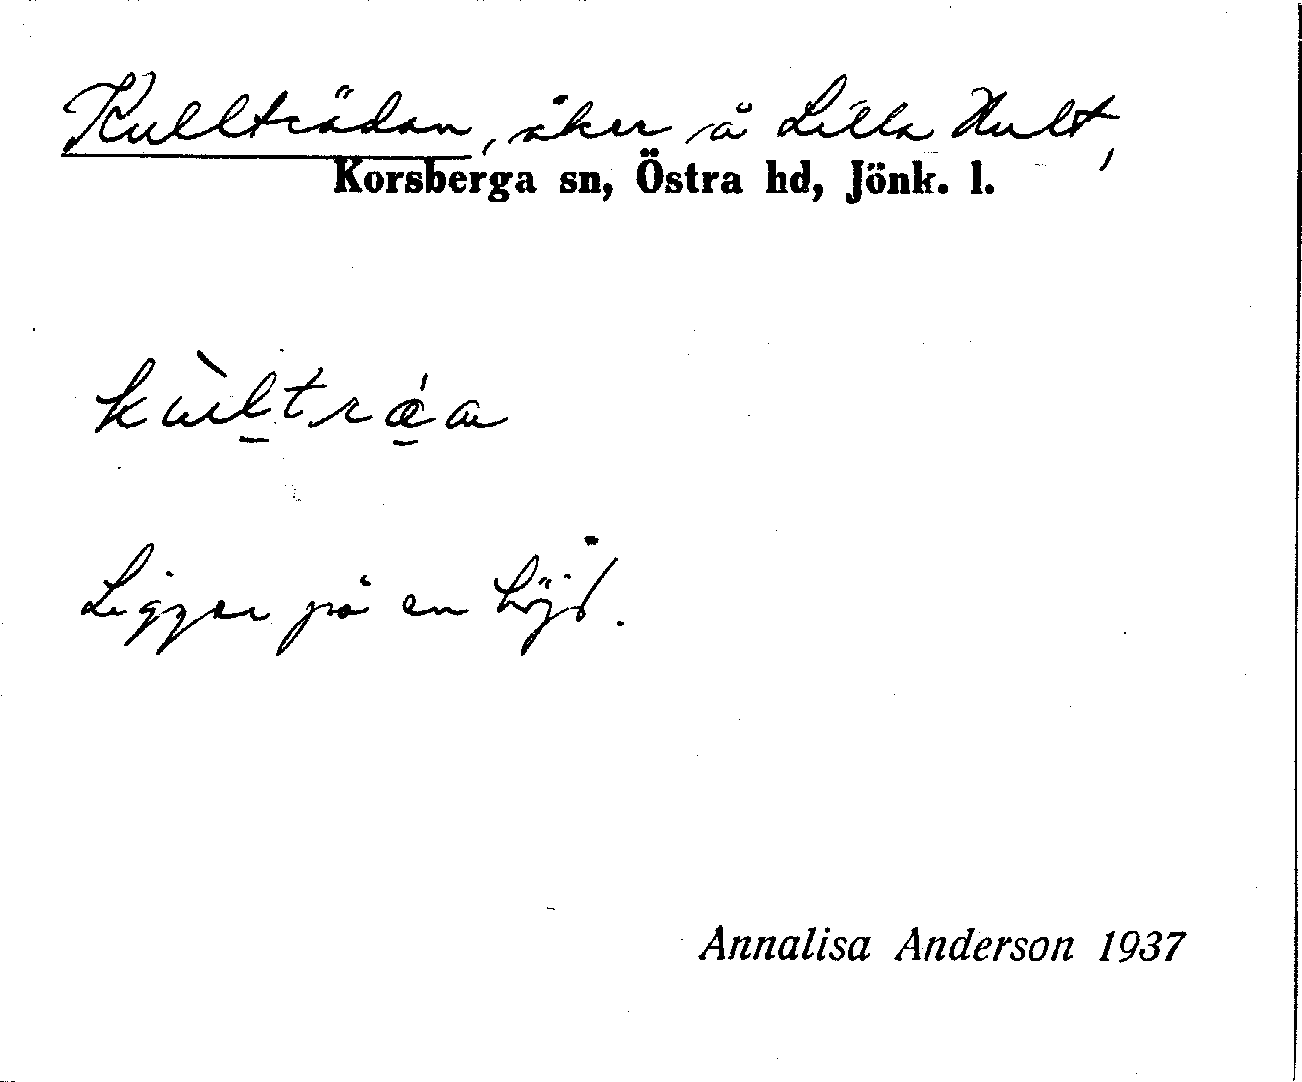 Kullträdan, åker å Lilla Hult,
Korsberga sn, Östra hd, Jönk. l.
kùl̠trǽ̠a
Ligger på en höjd.
Annalisa Anderson 1937